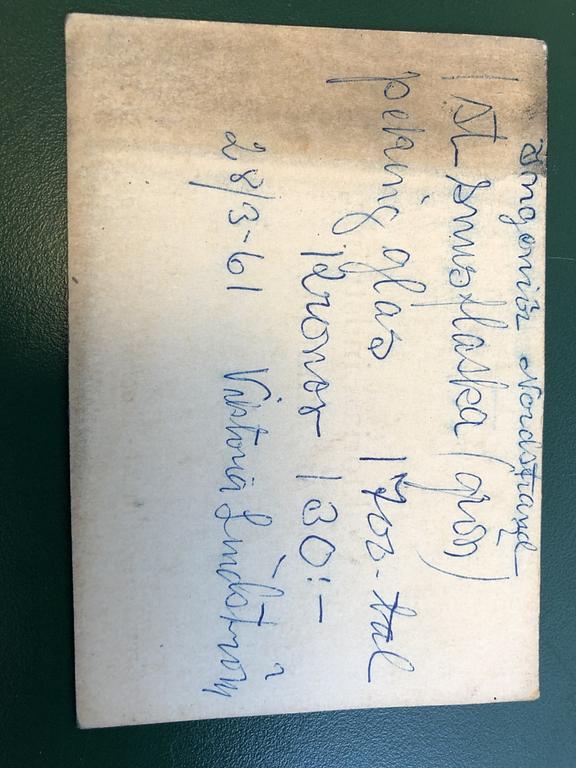 Ingeniör Nordstrand
1 st snusflaska (grön)
peking glas 1700-tal
Kronor 130:-
28/3-61 Viktoria Lindström